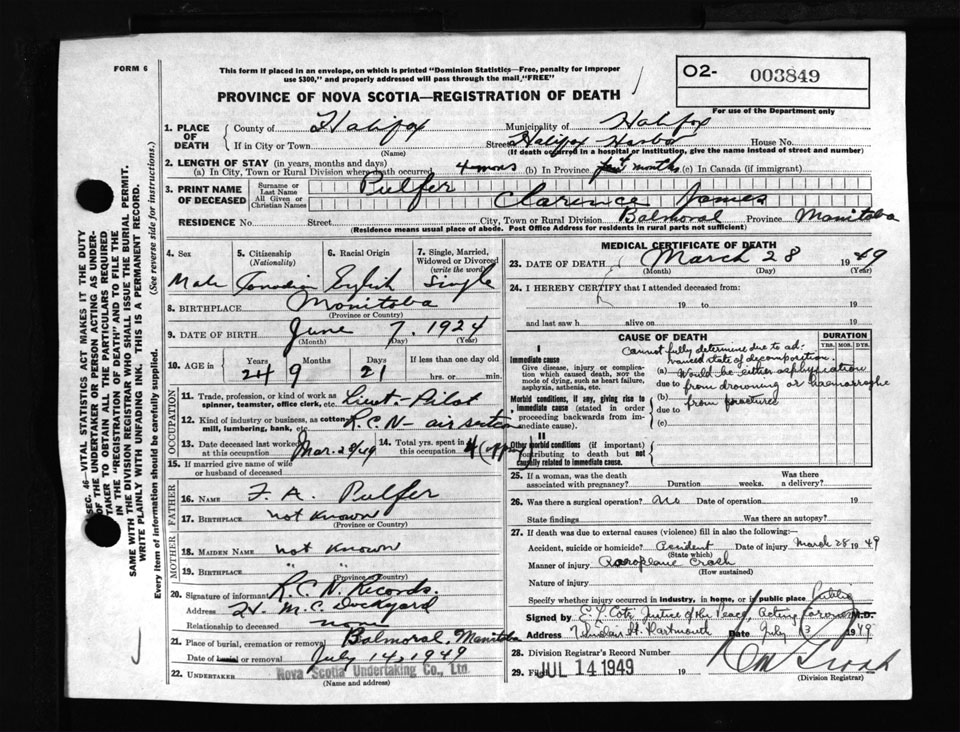 FORM 6
This form if placed in an envelope, on which is printed "Dominion Statistics—Free, penalty for improper
use $300," and properly addressed will pass through the mail, "FREE"
O2- 003849
For use of the Department only
PROVINCE OF NOVA SCOTIA—REGISTRATION OF DEATH
SEC. 46—VITAL STATISTICS ACT MAKES IT THE DUTY
OF THE UNDERTAKER OR PERSON ACTING AS UNDER-
TAKER TO OBTAIN ALL THE PARTICULARS REQUIRED
IN THE "REGISTRATION OF DEATH" AND TO FILE THE
SAME WITH THE DIVISION REGISTRAR WHO SHALL ISSUE THE BURIAL PERMIT.
WRITE PLAINLY WITH UNFADING INK, THIS IS A PERMANENT RECORD.
Every item of information should be carefully supplied. (See reverse side for instructions.)
1. PLACE OF DEATH County of Halifax Municipality of Halifax
If in City or Town (Name) Street Halifax House No.
(If death occurred in a hospital or institution, give the name instead of street and number)
2. LENGTH OF STAY (in years, months and days)
(a) In City, Town or Rural Division where death occurred 4 mos (b) In Province months (c) In Canada (if immigrant)
3. PRINT NAME OF DECEASED Surname or Last Name Pulfer
All Given or Christian Names Clarence James
RESIDENCE No. Street City, Town or Rural Division Balmoral Province Manitoba
(Residence means usual place of abode. Post Office Address for residents in rural parts not sufficient)
4. Sex Male
5. Citizenship (Nationality) Canadian
6. Racial Origin English
7. Single, Married, Widowed or Divorced (write the word) Single
8. BIRTHPLACE Manitoba
(Province or Country)
9. DATE OF BIRTH June 7, 1924
(Month) (Day) (Year)
10. AGE in Years 24 Months 9 Days 21 If less than one day old hrs. or min.
OCCUPATION
11. Trade, profession, or kind of work as spinner, teamster, office clerk, etc. Lieut-Pilot
12. Kind of industry or business, as cotton mill, lumbering, bank, etc. R.C.N- air section
13. Date deceased last worked at this occupation Mar. 28/49 14. Total yrs. spent in this occupation 4
15. If married give name of wife or husband of deceased
FATHER
16. NAME F. A. Pulfer
17. BIRTHPLACE not known
(Province or Country)
MOTHER
18. MAIDEN NAME not known
19. BIRTHPLACE " "
(Province or Country)
20. Signature of informant R.C.N. Records.
Address H. M. C. Dockyard
Relationship to deceased none
21. Place of burial, cremation or removal Balmoral, Manitoba
Date of burial or removal July 14, 1949
22. UNDERTAKER Nova Scotia Undertaking Co., Ltd.
(Name and address)
MEDICAL CERTIFICATE OF DEATH
23. DATE OF DEATH March 28 1949
(Month) (Day) (Year)
24. I HEREBY CERTIFY that I attended deceased from:
19 to 19
and last saw h alive on 19
CAUSE OF DEATH DURATION
YRS. MOS. DYS.
I
Immediate cause
Give disease, injury or complication which caused death, NOT the mode of dying, such as heart failure, asphyxia, asthenia, etc.
Cannot fully determine due to ad-
vanced state of decomposition.
(a) Would be either asphyxiation
due to from drowning or haemorraghe
(b) from fractures
due to
(c)
Morbid conditions, if any, giving rise to immediate cause (stated in order proceeding backwards from immediate cause).
II
Other morbid conditions (if important) contributing to death but not causally related to immediate cause.
25. If a woman, was the death associated with pregnancy? Duration weeks. Was there a delivery?
26. Was there a surgical operation? No Date of operation 19
State findings Was there an autopsy?
27. If death was due to external causes (violence) fill in also the following:-
Accident, suicide or homicide? Accident Date of injury March 28 1949
(State which)
Manner of injury Aeroplane Crash
(How sustained)
Nature of injury
Specify whether injury occurred in industry, in home, or in public place Public
Signed by Justice of the Peace, Acting Coroner M.D.
Address 7 Sinclair St. Dartmouth Date July 13 1949
28. Division Registrar's Record Number
29. Filed JUL 14 1949 19
(Division Registrar)